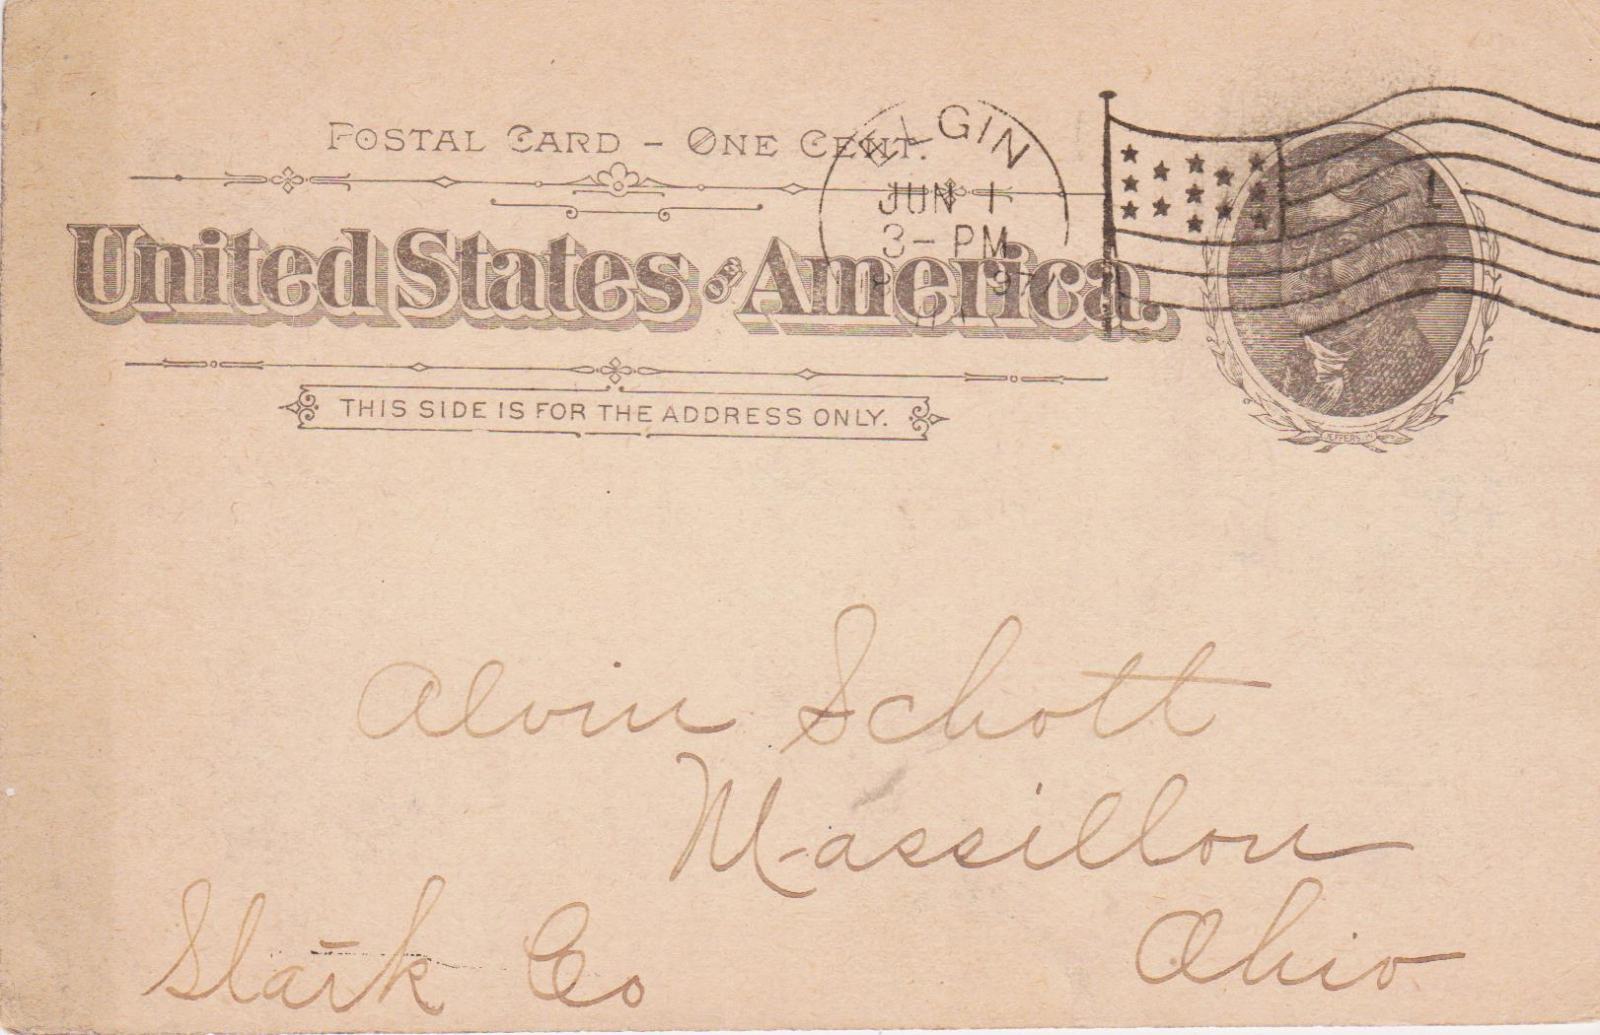 POSTAL CARD – ONE CENT.
ELGIN
JUN 1
3– PM
97
1
United States OF America.
THIS SIDE IS FOR THE ADDRESS ONLY.
JEFFERSON
Alvin Schott
Massillon
Stark Co Ohio